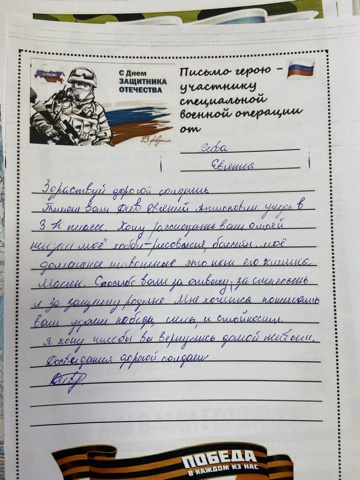 С Днем
ЗАЩИТНИКА
ОТЕЧЕСТВА
23 февраля
Письмо герою –
участнику
специальной
военной операции
от
Здраствуй дорогой солдат
Пишет вам Евгений учусь в
3 классе. Хочу рассказать вам о моей
жизни моё хобби-рисования, моё
домашнее животное это кот его кличка
Масик. Спасибо вам за отвагу, за смелость
и за защиту родины. Мы хотим пожелать
вам удачи победы, силы, и стойкости.
я хочу чтобы вы вернулись домой живыми.
Досвидания дорогой солдат
ПОБЕДА
В КАЖДОМ ИЗ НАС